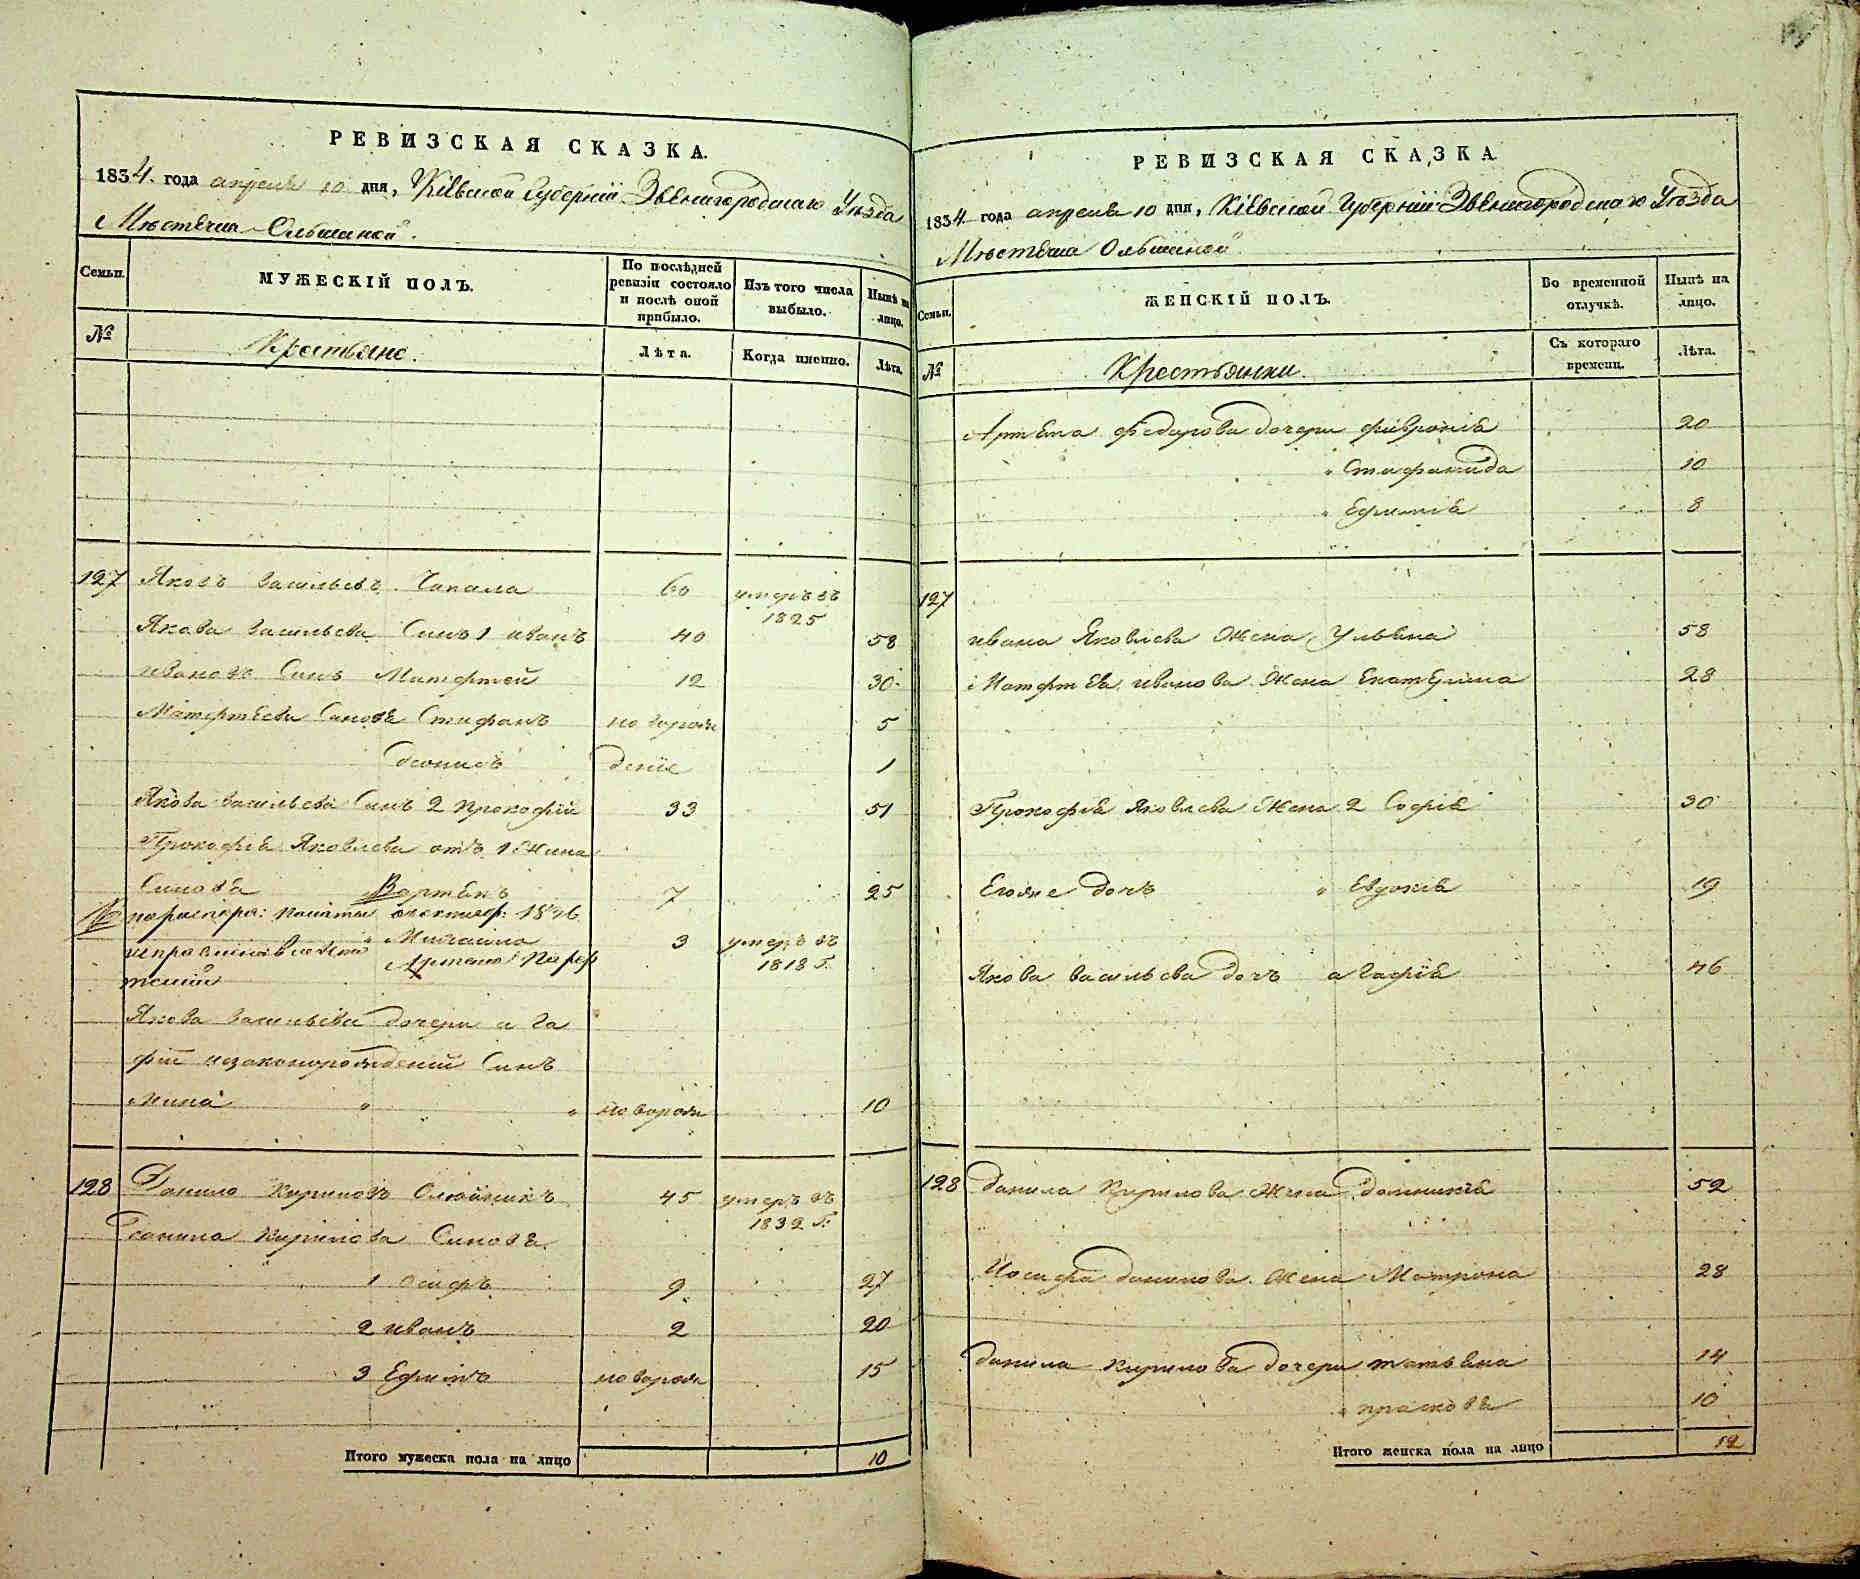 РЕВИЗСКАЯ СКАЗКА.
1834. года апреля 10 дня, Кіевской Губерніи Звенигородскаго Уезда
Местечка Ольшаной.
Семьи.
МУЖЕСКІЙ ПОЛЪ.
По послѣдней ревизіи состояло и послѣ оной прибыло.
Изъ того числа выбыло.
Нынѣ на лицо.
№
Крестьяне.
Лѣта.
Когда именно.
Лѣта.
127 Яковъ Васильевъ Чапала 60 умеръ въ 1825
Якова Васильева Синъ 1 иванъ 40 58
ивановъ Синъ Матфтей 12 30
Матфтева Синовя Стифанъ новорож 5
денисъ дение 1
Якова Васильева Синъ 2 прокофій 33 51
Прокофія Яковлева отъ 1 Жини
Синовя 7 25
Михаило 3 умеръ въ 1818 Г.
Якова Васильева дочери ага
фіи незаконорожденій Синъ
Мина " " новорож 10
128 Данило Кириловъ Олюйникъ 45 умеръ въ 1832 Г:
Данила Кирилова Синовя
1 Осифъ 9 27
2 иванъ 2 20
3 Ефимъ новорож 15
Итого мужеска пола на лицо 10
РЕВИЗСКАЯ СКАЗКА
1834 года апреля 10 дня, Кіевской Губерніи Звенигородскаго Уезда
Местечка Ольшаной
Семьи.
ЖЕНСКІЙ ПОЛЪ.
Во временной отлучкѣ.
Нынѣ на лицо.
№
Крестьянки.
Съ котораго времени.
Лѣта.
Артема Федорова дочери фивронія 20
" Стифанида 10
" Ефимія 8
127
ивана Яковлева Жена Ульяна 58
Матфтея иванова Жена Екатерина 28
Прокофія Яковлева Жена 2 Софія 30
Егоже дочъ " Евдокія 19
Якова Васильева дочъ агафія 46
128 Данила Кирилова Жена домникія 52
Иосифа данилова Жена Матрона 28
Данила Кирилова дочери татьяна 14
" прасковя 10
Итого женска пола на лицо 12